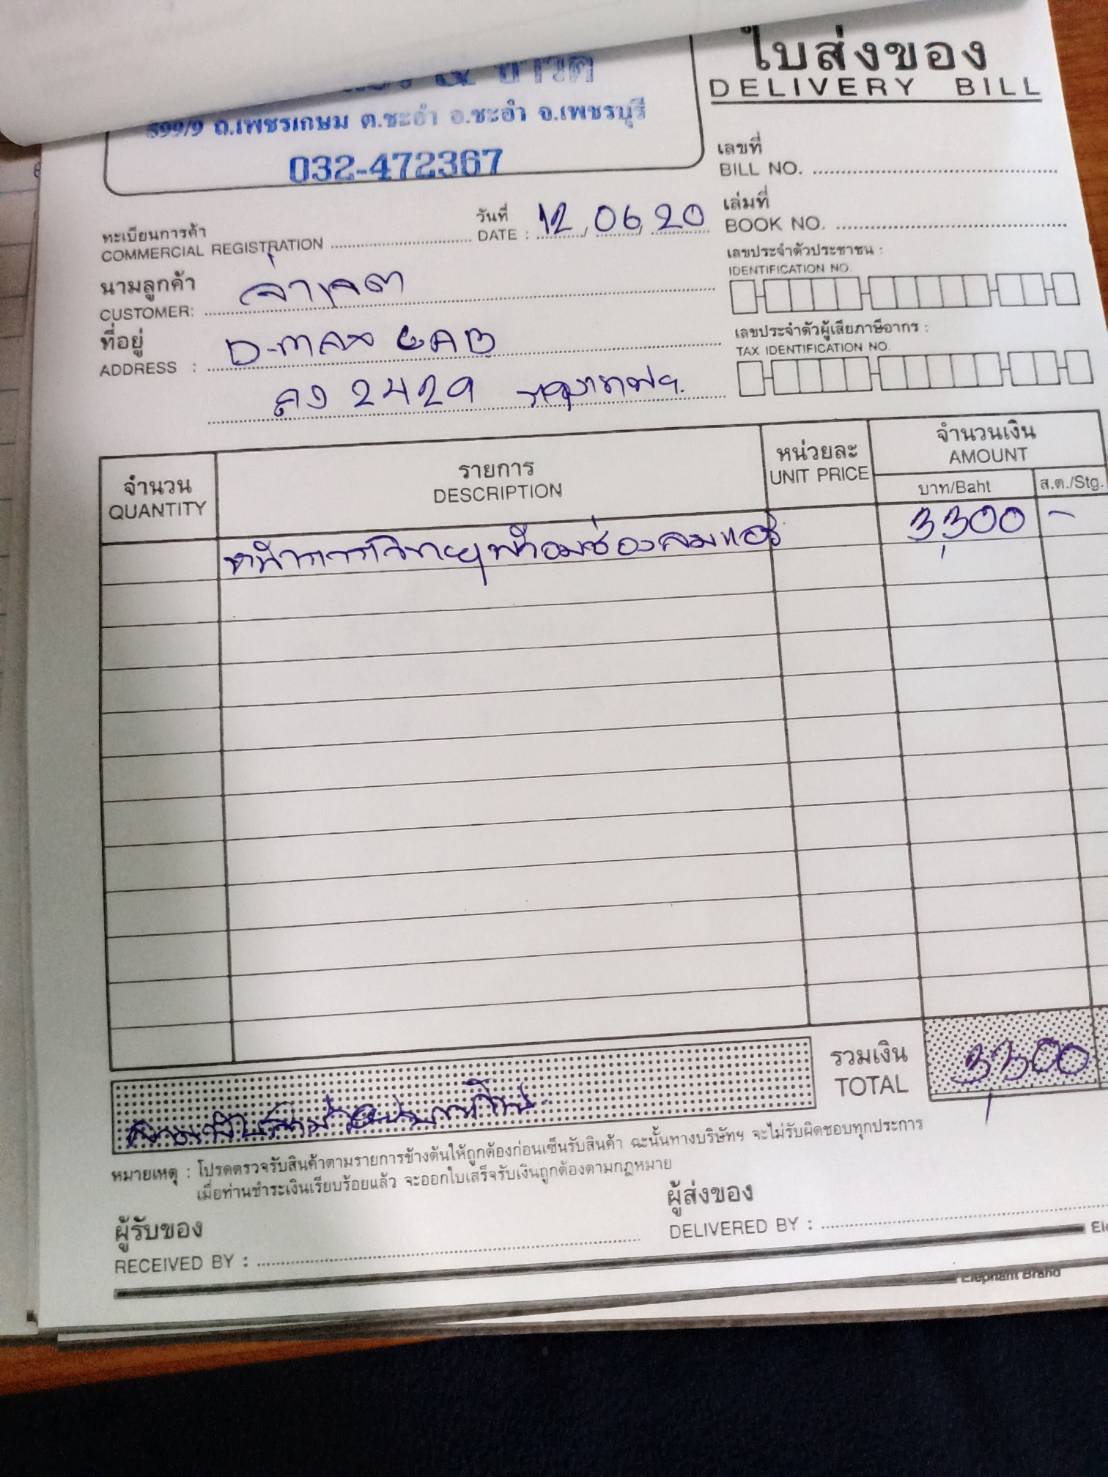 ใบส่งของ
DELIVERY BILL
599/9 ถ.เพชรเกษม ต.ชะอำ อ.ชะอำ จ.เพชรบุรี
032-472367
เลขที่
BILL NO.
เล่มที่
BOOK NO.
ทะเบียนการค้า
COMMERCIAL REGISTRATION
วันที่
DATE : 12, 06, 20
นามลูกค้า
CUSTOMER: จ่าเจต
ที่อยู่
ADDRESS : D-max CAB
2429 กรุงเทพฯ
เลขประจำตัวประชาชน :
IDENTIFICATION NO.
เลขประจำตัวผู้เสียภาษีอากร :
TAX IDENTIFICATION NO.
จำนวน
QUANTITY
รายการ
DESCRIPTION
หน่วยละ
UNIT PRICE
จำนวนเงิน
AMOUNT
บาท/Baht
ส.ต./Stg.
หน้ากากวิทยุพร้อมช่องลมแอร์ 3,300 -
รวมเงิน
TOTAL
3,300
หมายเหตุ : โปรดตรวจรับสินค้าตามรายการข้างต้นให้ถูกต้องก่อนเซ็นรับสินค้า ฉะนั้นทางบริษัทฯ จะไม่รับผิดชอบทุกประการ
เมื่อท่านชำระเงินเรียบร้อยแล้ว จะออกใบเสร็จรับเงินถูกต้องตามกฎหมาย
ผู้รับของ
RECEIVED BY :
ผู้ส่งของ
DELIVERED BY :
Elephant Brand